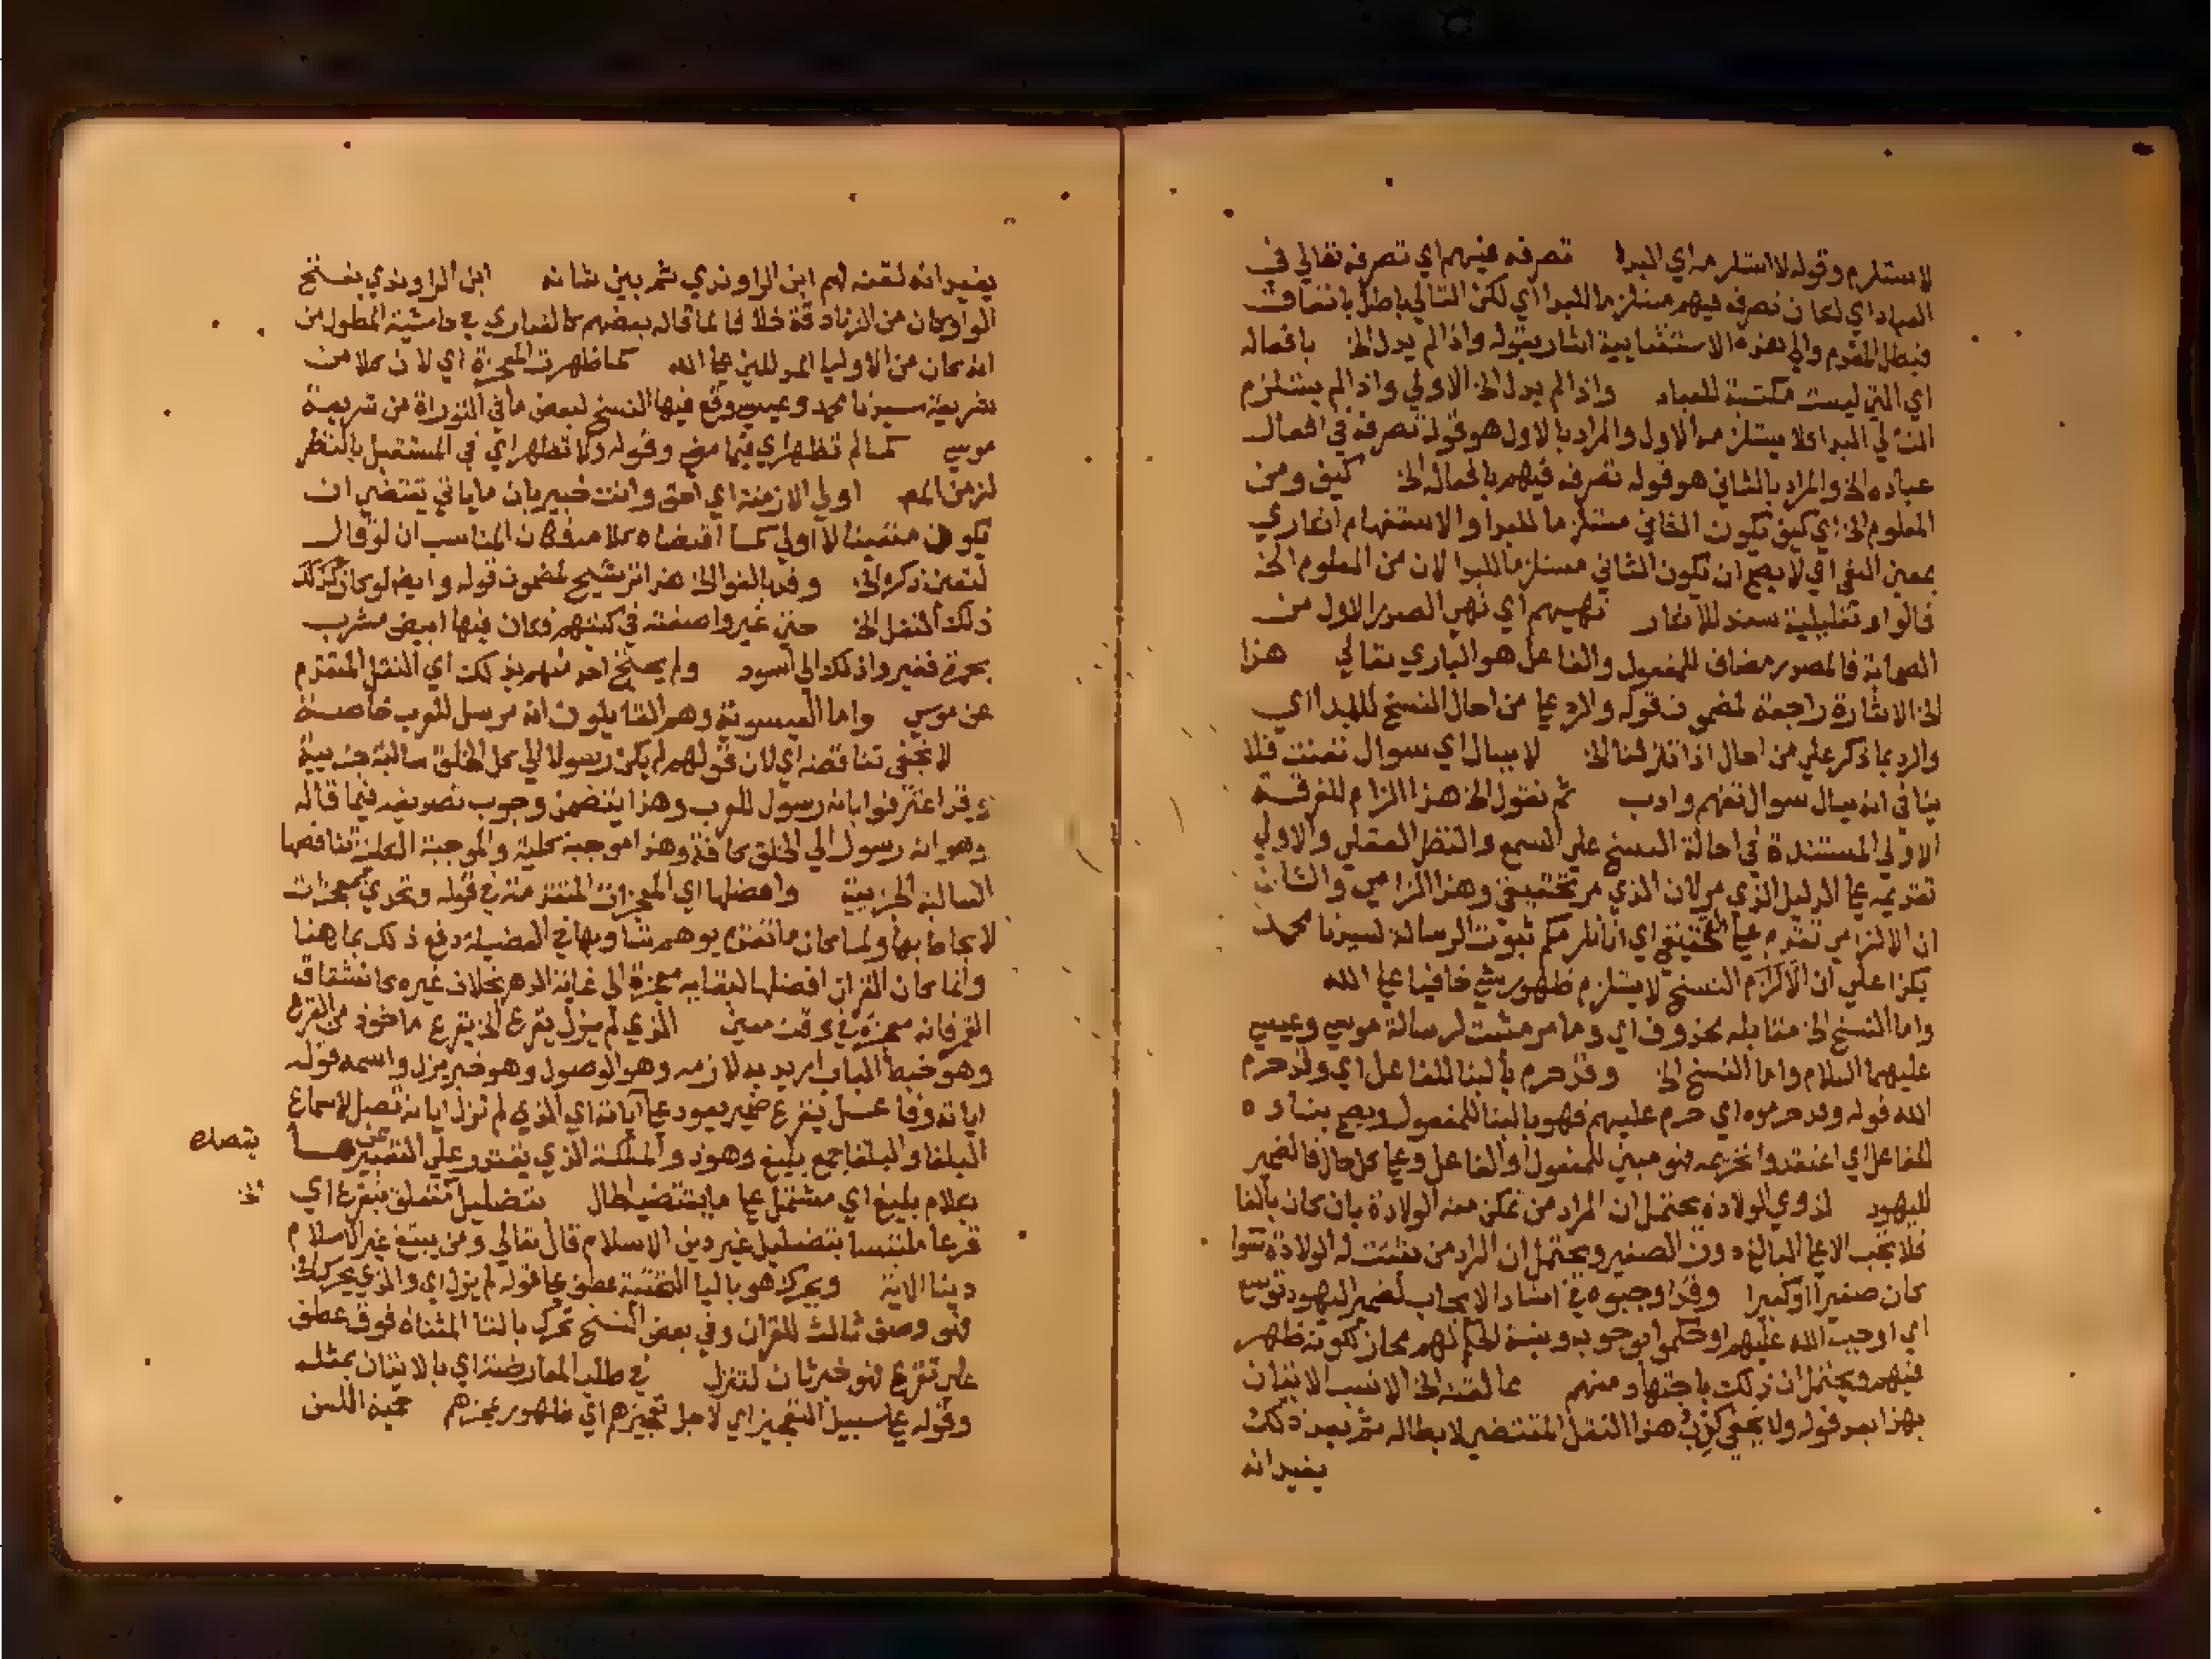 لاستلزم وقوله لاستلزمه اي البدا تصرفه فيهم اي تصرفه تعالي في
العباد اي لكان تصرفه فيهم مستلزما للبدا اي لكن التالي باطل باتفاق
فبطل المقدم والي هذه الاستثنايية اشار بقوله واذا لم يدل الخ بافعاله
اي التي ليست مكتسبة للعباد واذا لم يدل الخ الاولي واذا لم يستلزم
الثاني البدا فلا يستلزمه الاول والمراد بالاول هو قوله تصرفه في افعال
عباده الخ والمراد بالثاني هو قوله تصرفه فيهم بافعاله الخ كيف ومن
المعلوم الخ اي كيف يكون الثاني مستلزما للبدا والاستفهام انكاري
بمعني النفي اي لا يصح ان يكون الثاني مستلزما للبدا لان من المعلوم الخ
فالواو تعليلية سند للانكار نهيهم اي نهي
فالمصدر مضاف للمفعول والفاعل هو الباري تعالي هذا
الخ الاشارة راجعة لمضمون قوله والرد علي من احال النسخ للبدا اي
والرد بما ذكر علي من احال اذا تنزلنا الخ لا يسال اي سوال تعنت فلا
ينافي انه يسال سوال تفهم وادب ثم نقول الخ هذا الزام للفرقة
الاولي المستندة في احالة النسخ علي السمع والنقل العقلي والاولي
تقديمه علي الدليل الذي مر لان الذي مر تحقيقي وهذا الزامي والشان
ان الالزامي تقدم علي التحقيقي اي انا نلزمكم ثبوت الرسالة لسيدنا محمد
بكذا علي ان النسخ لا يستلزم ظهور شي خافيا علي الله
واما النسخ الخ مقابله محذوف اي وما مر مثبت لرسالة موسي وعيسي
عليهما السلام واما النسخ الخ وقد حرم بالبنا للفاعل اي وقد حرم
الله قوله وقد حرموه اي حرم عليهم فهو بالبنا للمفعول ويصح بناوه
للفاعل اي اعتقدوا تحريمه فهو مبني للمفعول او الفاعل وعلي كل حال فالضمير
لليهود لذوي الولادة يحتمل ان المراد من تمكن منه الولادة بان كان بالغا
فلا يجب الا علي البالغ دون الصغير ويحتمل ان المراد من تثبت له الولادة سوا
كان صغيرا او كبيرا وقد اوجبوه في اسناد الايجاب لضمير اليهود توسع
اي اوجب الله عليهم او حكموا بوجوبه ونسبة الحكم لهم مجاز لكونه ظهر
فيهم ويحتمل ان ذلك باجتهاد منهم الخ الانسب الاتيان
بهذا بعد قوله ولا يخفي كذب هذا النقل المقتضي لابطاله ثم بعد ذلك
يفيد انه
يفيد انه لقنه لهم ابن الراوندي ثم بين شانه ابن الراوندي بفتح
الواو كان من الزنادقة خلافا لما قاله بعضهم كالفناري في حاشية المطول من
انه كان من الاوليا علي الله كما ظهرت المعجزة اي لان كلا من
شريعة سيدنا محمد وعيسي وقع فيها النسخ لبعض ما في التوراة من شريعة
موسي كما لم تظهر اي فيما مضي وقوله ولا تظهر اي في المستقبل بالنظر
لزمن اولي الازمنة اي احق وانت خبير بان ما ياتي يقتضي ان
يكون متعينا لا اولي كما اقتضاه كلامه فكان المناسب ان لو قال
لتعين ذكره الخ وقد بالغوا الخ هذا ترشيح لمضمون قوله وايضا لو كان كذلك
ذلك النقل الخ حتي غيروا صفته في كتبهم فكان فيها ابيض مشرب
بحمرة فغيروا ذلك الي اسود ولم يحتج احد منهم بذلك اي النقل المتقدم
عن موسي واما العيسوية وهم القايلون انه مرسل للعرب خاصة
لا يخفي تناقضه اي لان قولهم لم يكن رسولا الي كل الخلق سالبة جزيية
وقد اعترفوا بانه رسول للعرب وهذا يتضمن وجوب تصديقه فيما قاله
وهو انه رسول الي الخلق كافة وهذا موجبة كلية والموجبة الكلية تناقضها
السالبة الجزيية وافضلها اي المعجزات المتقدمة في قوله وتحدي بمعجزات
لا يحاط بها ولما كان ما تقدم يوهم تساويها في الفضيلة دفع ذلك بما هنا
وانما كان القران افضلها لبقايه معجزة الي غاية الدهر بخلاف غيره كانشقاق
القمر فانه معجزة في وقت معين الذي لم يزل يقرع الخ يقرع ماخوذ من القرع
وهو خبط الباب اريد به لازمه وهو الوصول وهو خبر يزل واسمه قوله
اياته يقرع ضمير يعود علي آياته اي الذي لم تزل اياته تصل لاسماع
البلغا والبلغا جمع بليغ وهو ذو الملكة الذي يقتدر علي التعبير عن
بكلام بليغ اي مشتمل علي ما يقتضيه الحال بتضليل متعلق بيقرع اي
قرعا ملتبسا بتضليل غير دين الاسلام قال تعالي ومن يبتغ غير الاسلام
دينا الاية ويحرك هو باليا التحتية عطف علي قوله لم يزل اي والذي يحرك الخ
فهو وصف ثالث للقران وفي بعض النسخ تحرك بالتا المثناة فوق عطف
علي تقرع فهو خبر ثان لتنزل في طلب المعارضة اي بالاتيان بمثله
وقوله علي سبيل التعجيز اي لاجل تعجيزهم اي ظهور عجزهم حمية اللسن